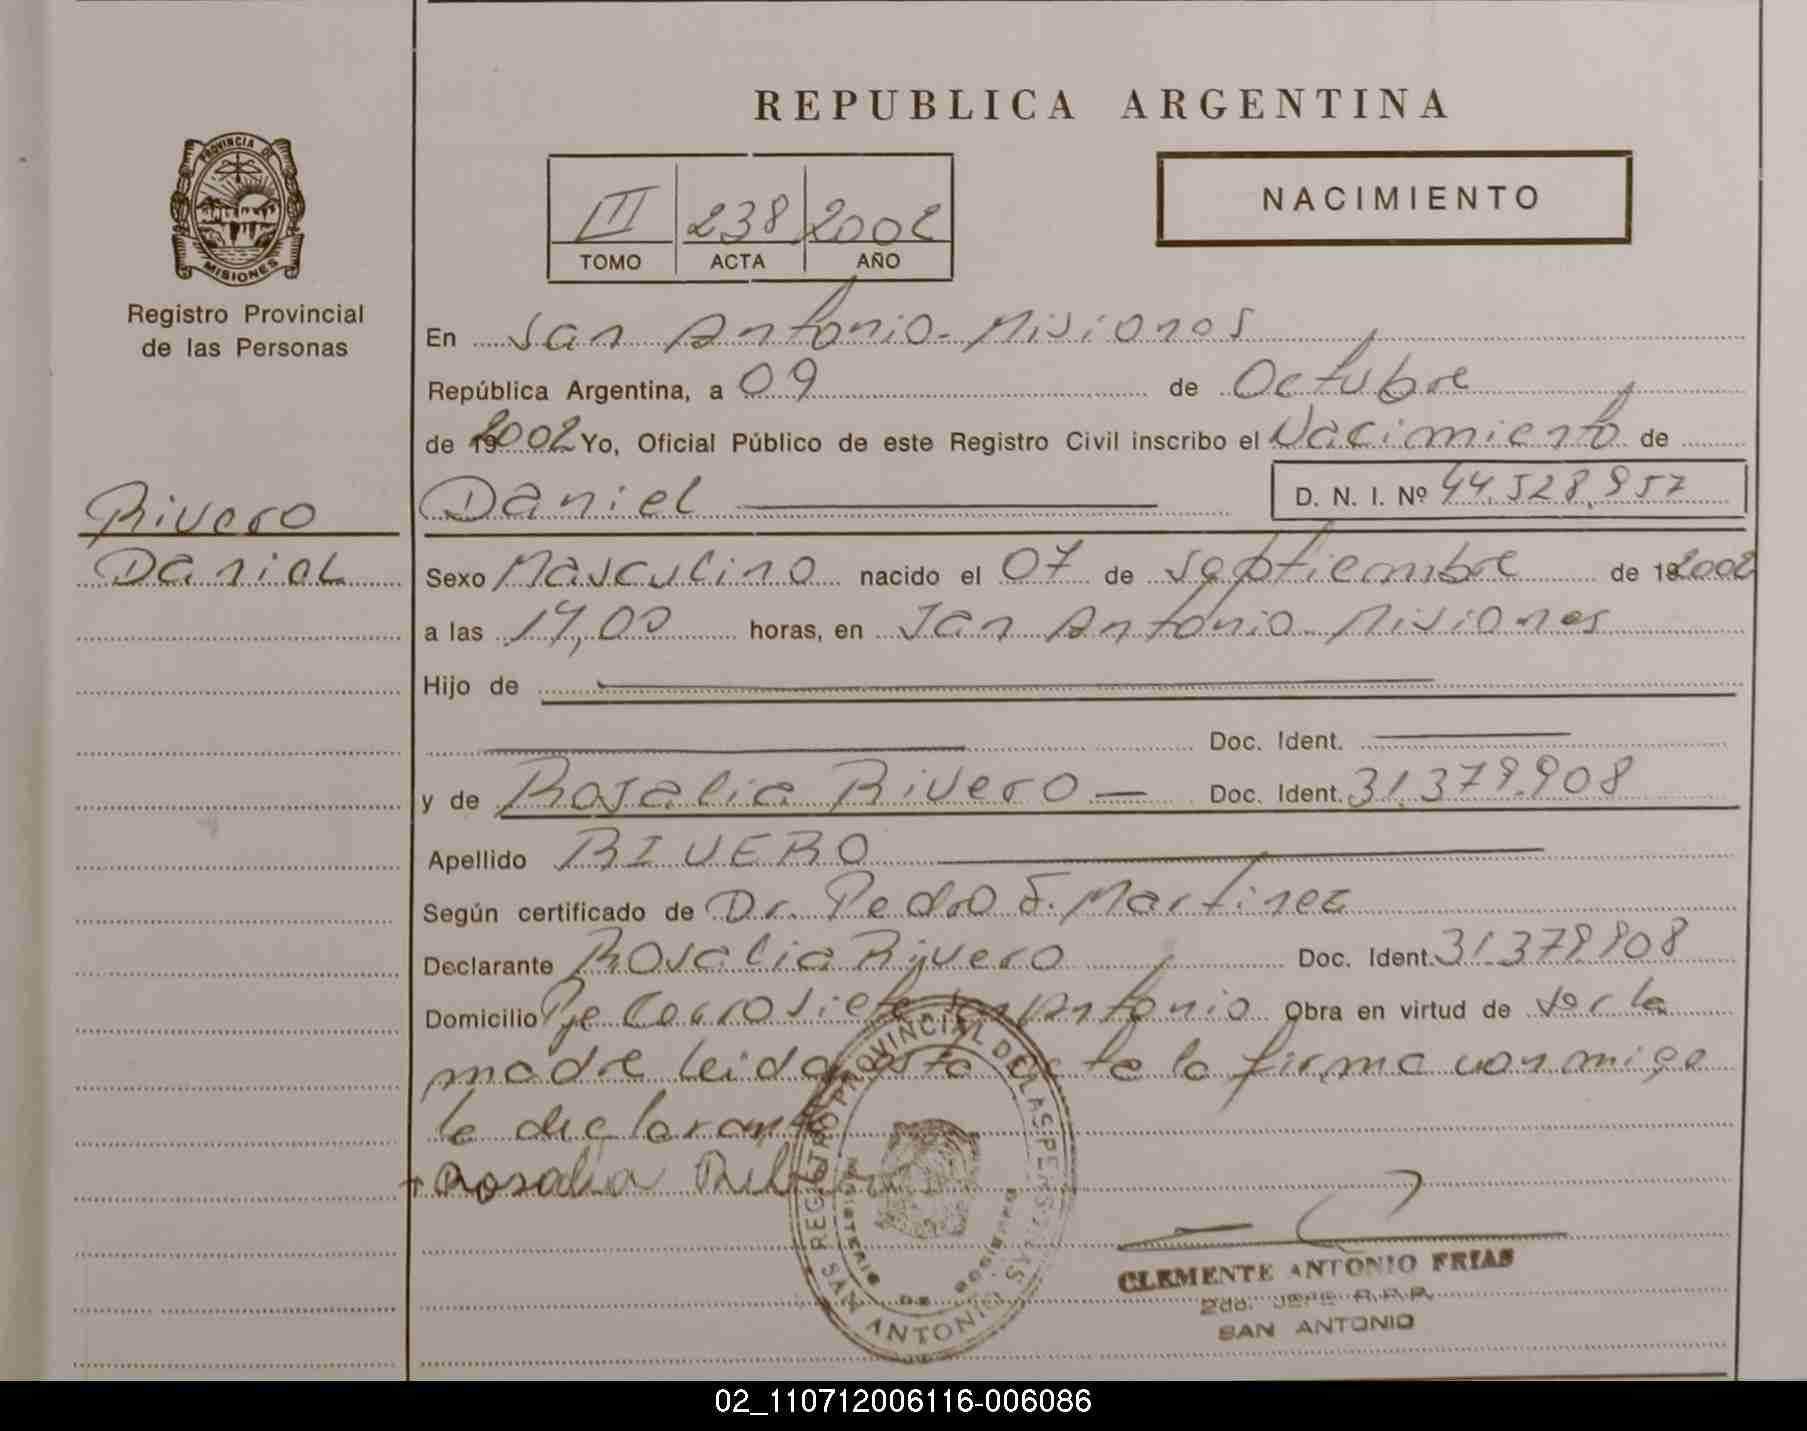 REPUBLICA ARGENTINA
PROVINCIA DE
MISIONES
Registro Provincial
de las Personas
III 238 2002
TOMO ACTA AÑO
NACIMIENTO
En San Antonio - Misiones
República Argentina, a 09 de Octubre
de 2002 Yo, Oficial Público de este Registro Civil inscribo el Nacimiento de
Rivero
Daniel
D. N. I. Nº 44.528.957
Daniel
Sexo Masculino nacido el 07 de Septiembre de 2002
a las 17,00 horas, en San Antonio Misiones
Hijo de
Doc. Ident.
y de Rosalia Rivero Doc. Ident. 31.379.908
Apellido RIVERO
Según certificado de Dr. Pedro S. Martinez
Declarante Rosalia Rivero Doc. Ident. 31.379.908
Domicilio Pje Cerro Siete San Antonio Obra en virtud de Ser la
madre leida esta acta la firma conmigo
la declarante
Rosalia
REGISTRO PROVINCIAL DE LAS PERSONAS
MINISTERIO DE GOBIERNO
SAN ANTONIO
CLEMENTE ANTONIO FRIAS
2do. JEFE R.P.P.
SAN ANTONIO
02_110712006116-006086